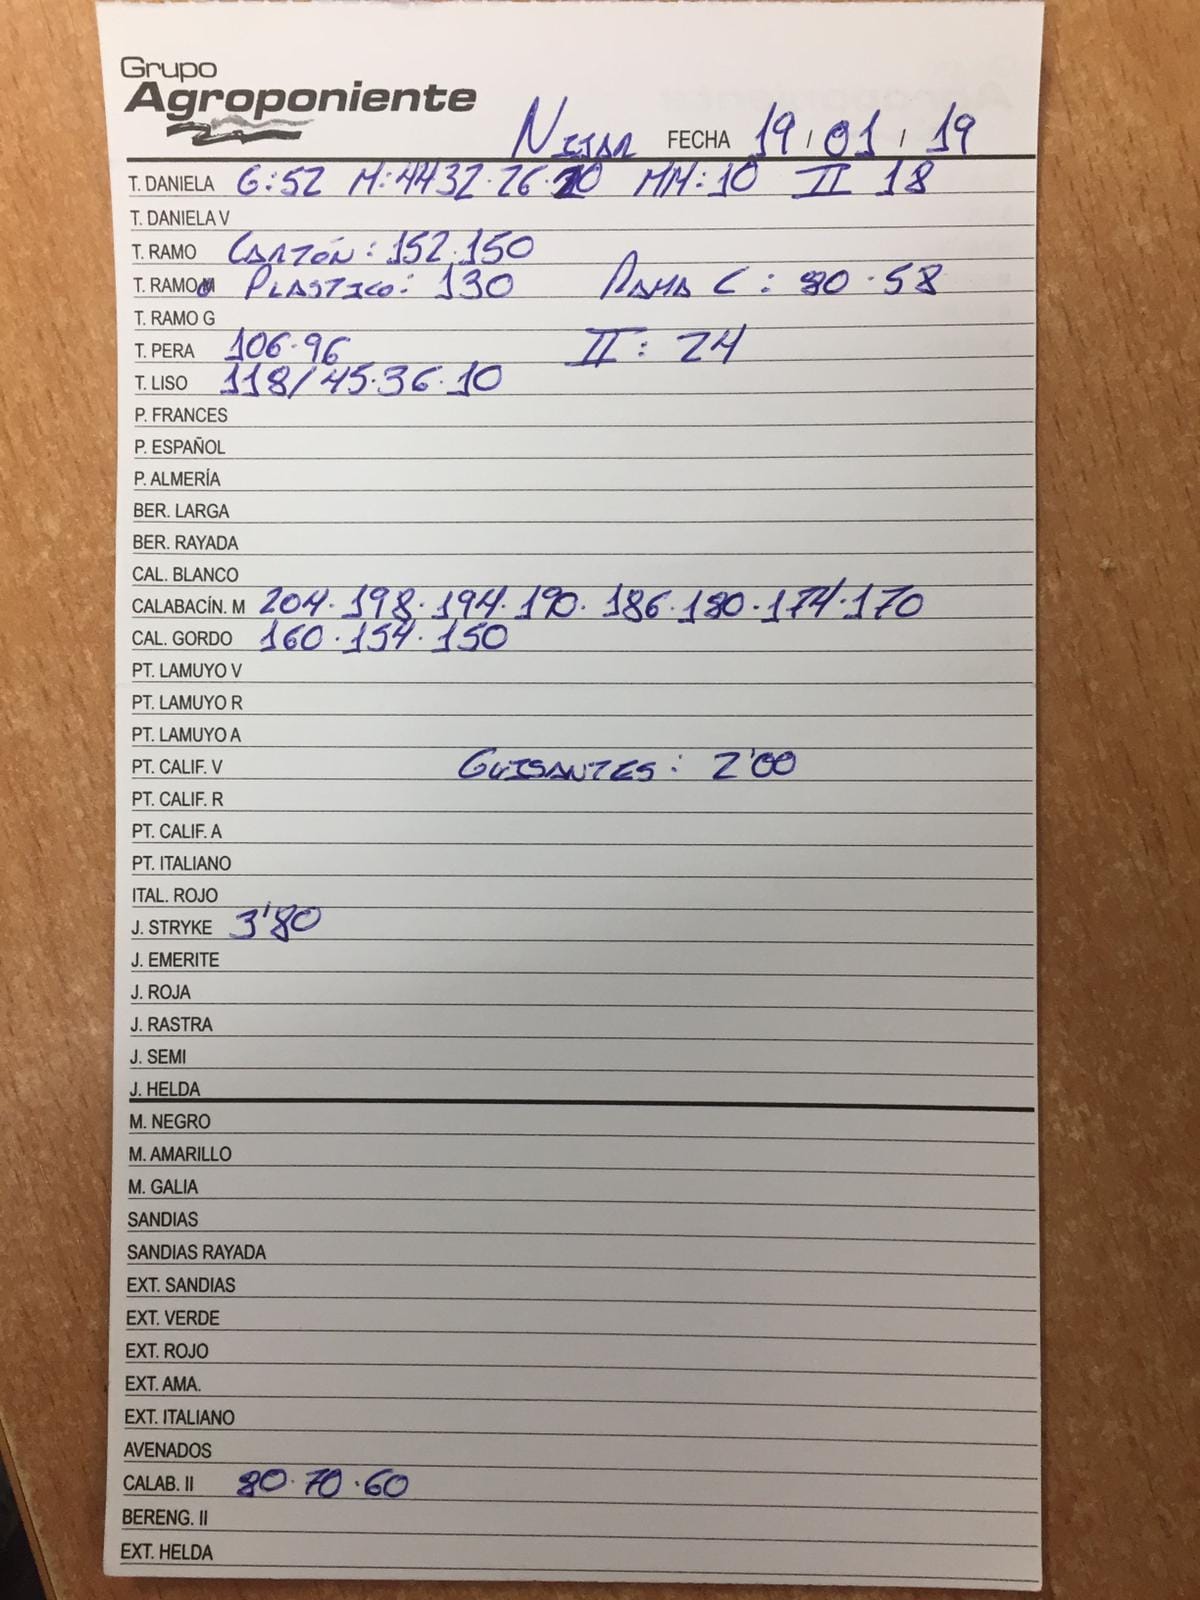 Grupo
Agroponiente
NIJAR FECHA 19 / 01 / 19
T. DANIELA G:52 M:44 32·26·20 MM:10 II 18
T. DANIELA V
T. RAMO CARTÓN: 152·150
T. RAMO M PLASTICO: 130 RAMA C: 80·58
T. RAMO G
T. PERA 106·96 II: 24
T. LISO 118/45·36·10
P. FRANCES
P. ESPAÑOL
P. ALMERÍA
BER. LARGA
BER. RAYADA
CAL. BLANCO
CALABACÍN. M 204·198·194·190·186·180·174·170
CAL. GORDO 160·154·150
PT. LAMUYO V
PT. LAMUYO R
PT. LAMUYO A
PT. CALIF. V GUISANTES: 2'00
PT. CALIF. R
PT. CALIF. A
PT. ITALIANO
ITAL. ROJO
J. STRYKE 3'80
J. EMERITE
J. ROJA
J. RASTRA
J. SEMI
J. HELDA
M. NEGRO
M. AMARILLO
M. GALIA
SANDIAS
SANDIAS RAYADA
EXT. SANDIAS
EXT. VERDE
EXT. ROJO
EXT. AMA.
EXT. ITALIANO
AVENADOS
CALAB. II 80·70·60
BERENG. II
EXT. HELDA